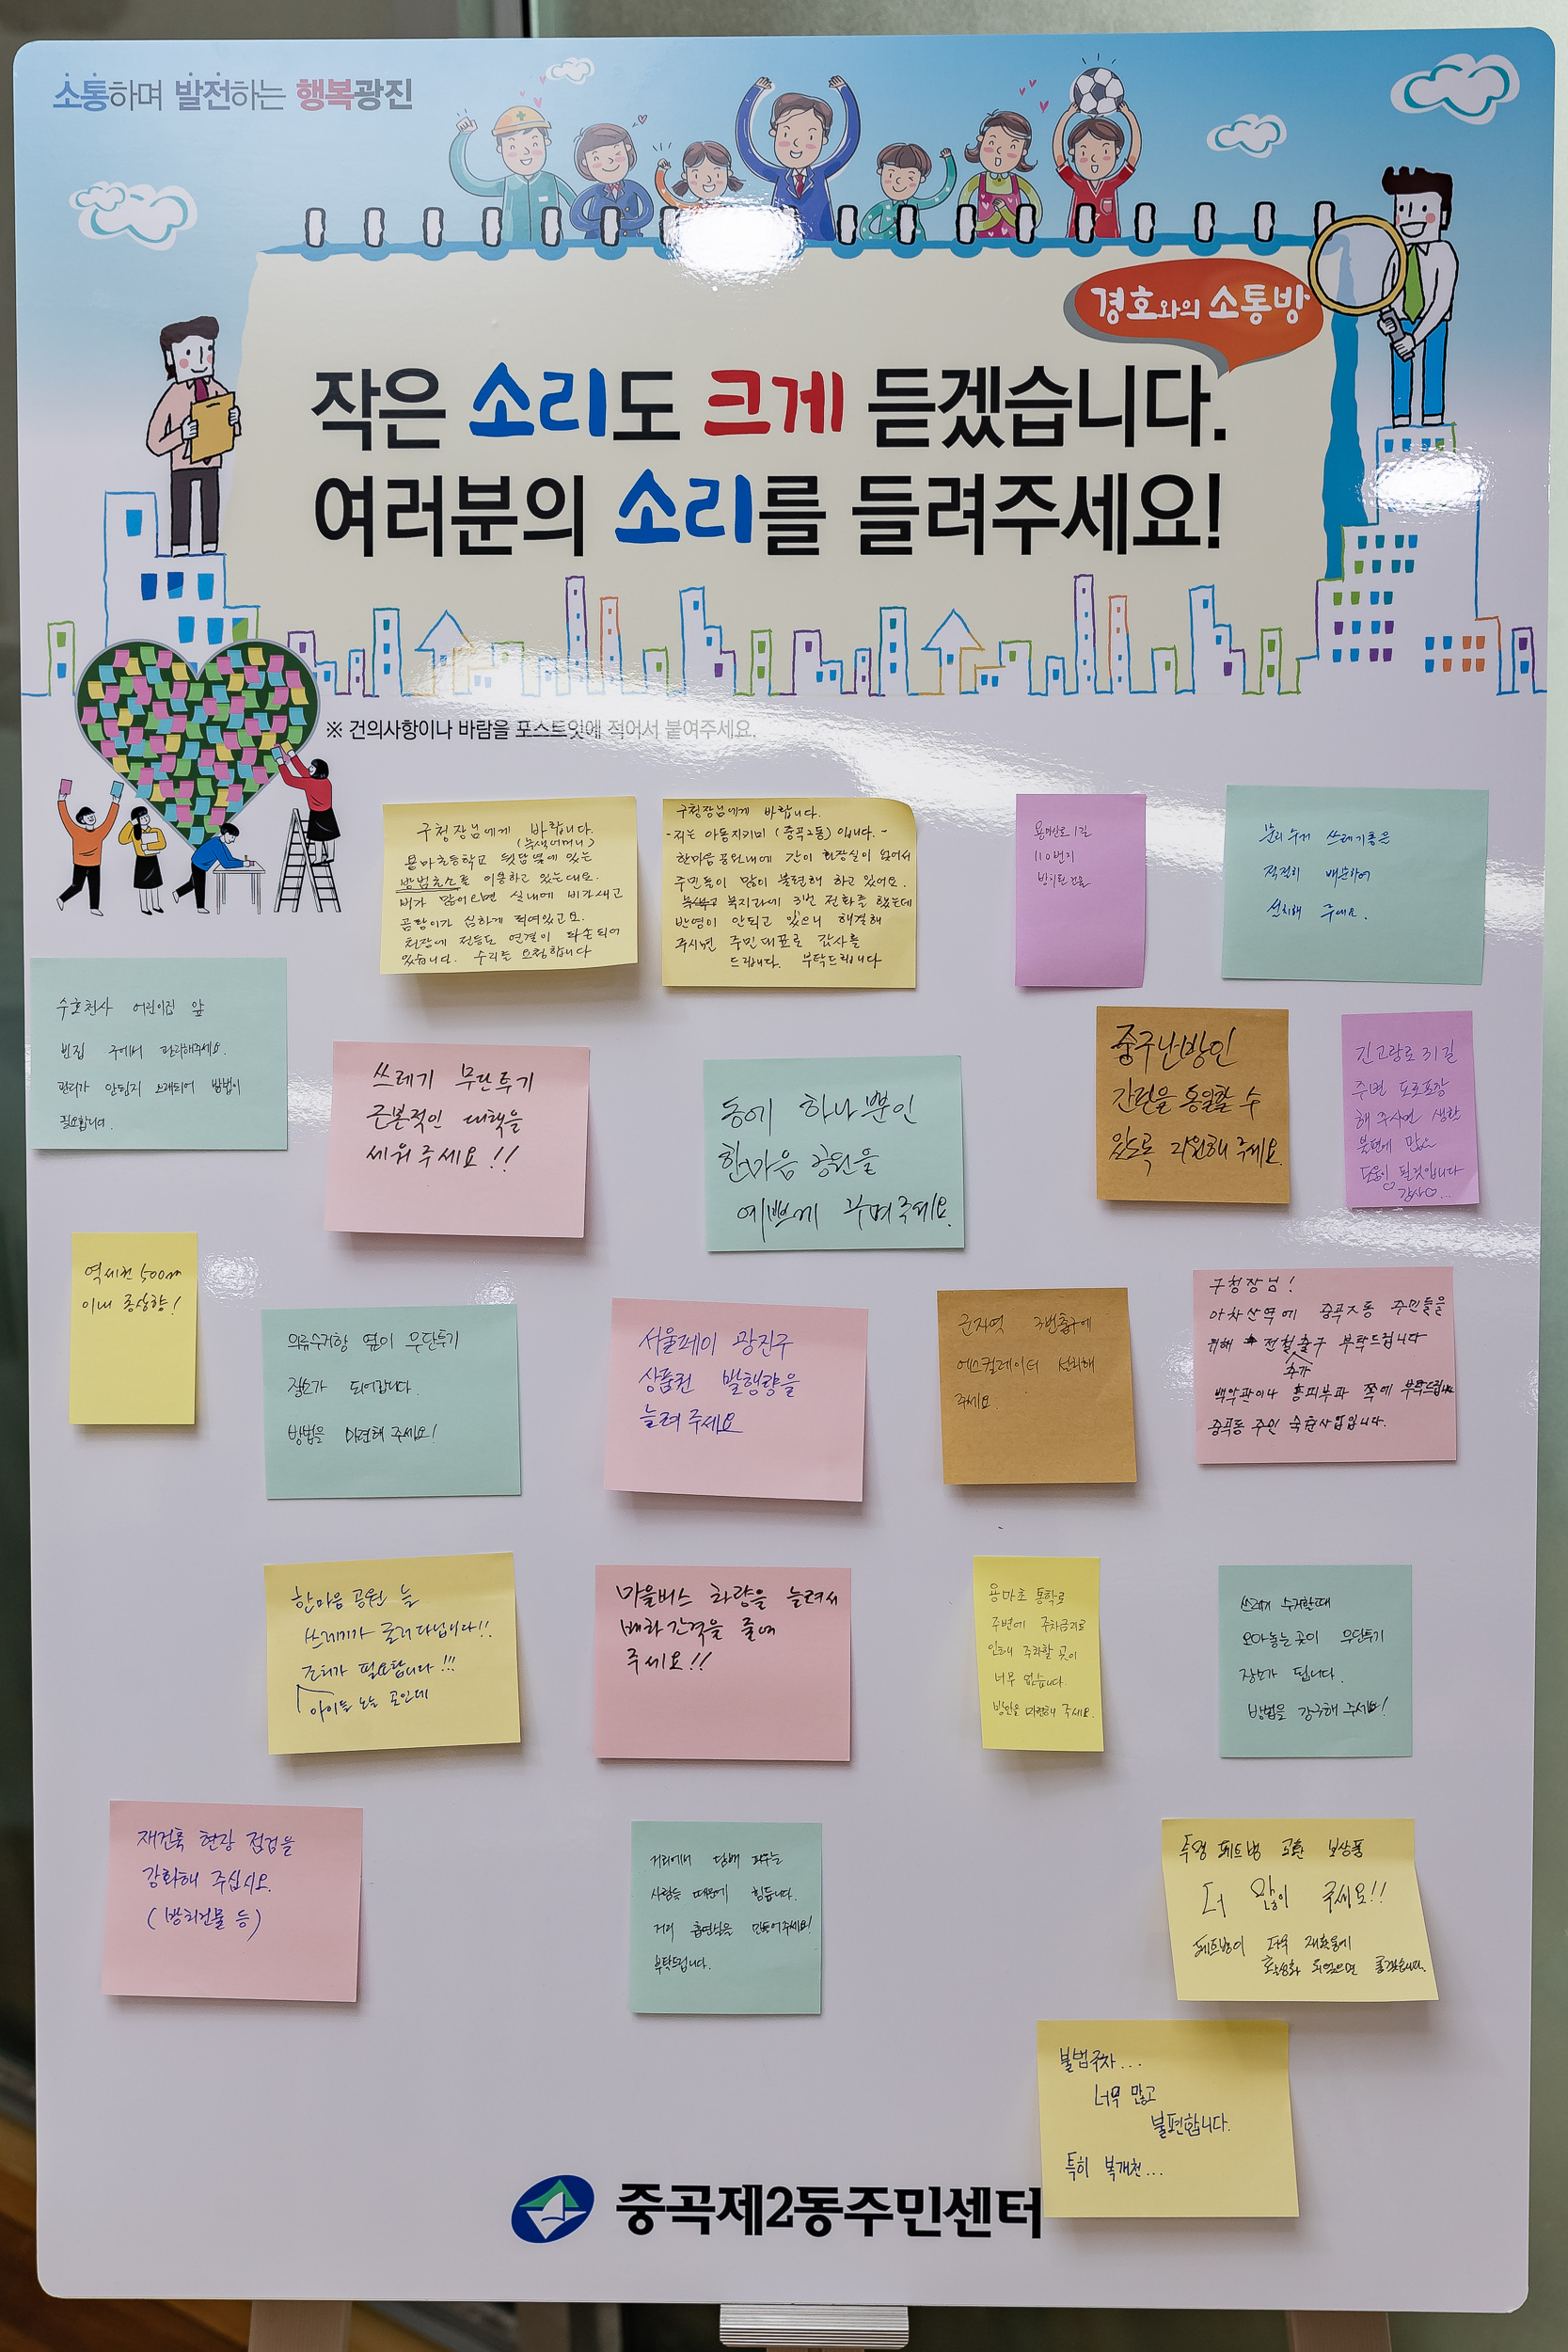 소통하며 발전하는 행복광진
경호와의 소통방
작은 소리도 크게 듣겠습니다.
여러분의 소리를 들려주세요!
※ 건의사항이나 바람을 포스트잇에 적어서 붙여주세요.
구청장님에게 바랍니다.
(녹색어머니)
용마초등학교 뒷담 옆에 있는
방범초소를 이용하고 있는데요.
비가 많이오면 실내에 비가새고
곰팡이가 심하게 적여있고요.
천장에 전등도 연결이 파손되어
있습니다. 수리를 요청합니다
구청장님에게 바랍니다.
-저는 아동지키미 (중곡2동) 입니다.-
한마음공원내에 간이 화장실이 없어서
주민들이 많이 불편해 하고 있어요.
복지과에 3번 전화를 했는데
반영이 안되고 있으니 해결해
주시면 주민대표로 감사를
드립니다. 부탁드립니다
용마산로 1길
110번지
방치된 건물
분리수거 쓰레기통을
적절히 배분하여
설치해 주세요.
수호천사 어린이집 앞
빈집 구에서 관리해주세요.
관리가 안된지 오래되어 방법이
필요합니다.
쓰레기 무단투기
근본적인 대책을
세워주세요!!
동에 하나뿐인
한마음 공원을
예쁘게 꾸며주세요.
중구난방인
간판을 통일할 수
있도록 지원해 주세요.
긴고랑로 31길
주변 도로포장
해 주시면 생활
불편에 많은
도움이 될것입니다
감사♡...
역세권 500m
이내 종상향!
의류수거함 옆이 무단투기
장소가 되어갑니다.
방법을 마련해 주세요!
서울페이 광진구
상품권 발행량을
늘려주세요
군자역 3번출구에
에스컬레이터 설치해
주세요.
구청장님!
아차산역에 중곡2동 주민들을
위해 전철출구 부탁드립니다
추가
백악관이나 홍피부과 쪽에 부탁드립니다
중곡동 주민 숙원사업입니다.
한마음 공원 늘
쓰레기가 굴러다닙니다!!
조치가 필요합니다!!!
아이들 노는 곳인데
마을버스 차량을 늘려서
배차간격을 줄여
주세요!!
용마초 통학로
주변에 주차금지로
인해 주차할 곳이
너무 없습니다.
방안을 마련해 주세요.
쓰레기 수거할때
모아놓는곳이 무단투기
장소가 됩니다.
방법을 강구해 주세요!
재건축 현장 점검을
강화해 주십시오.
(방치건물 등)
거리에서 담배 피우는
사람들 때문에 힘듭니다.
거리 흡연실을 만들어주세요!
부탁드립니다.
투명 페트병 교환 보상품
더 많이 주세요!!
페트병이 더욱 재활용에
활성화 되었으면 좋겠습니다.
불법주차...
너무 많고
불편합니다.
특히 복개천...
중곡제2동주민센터